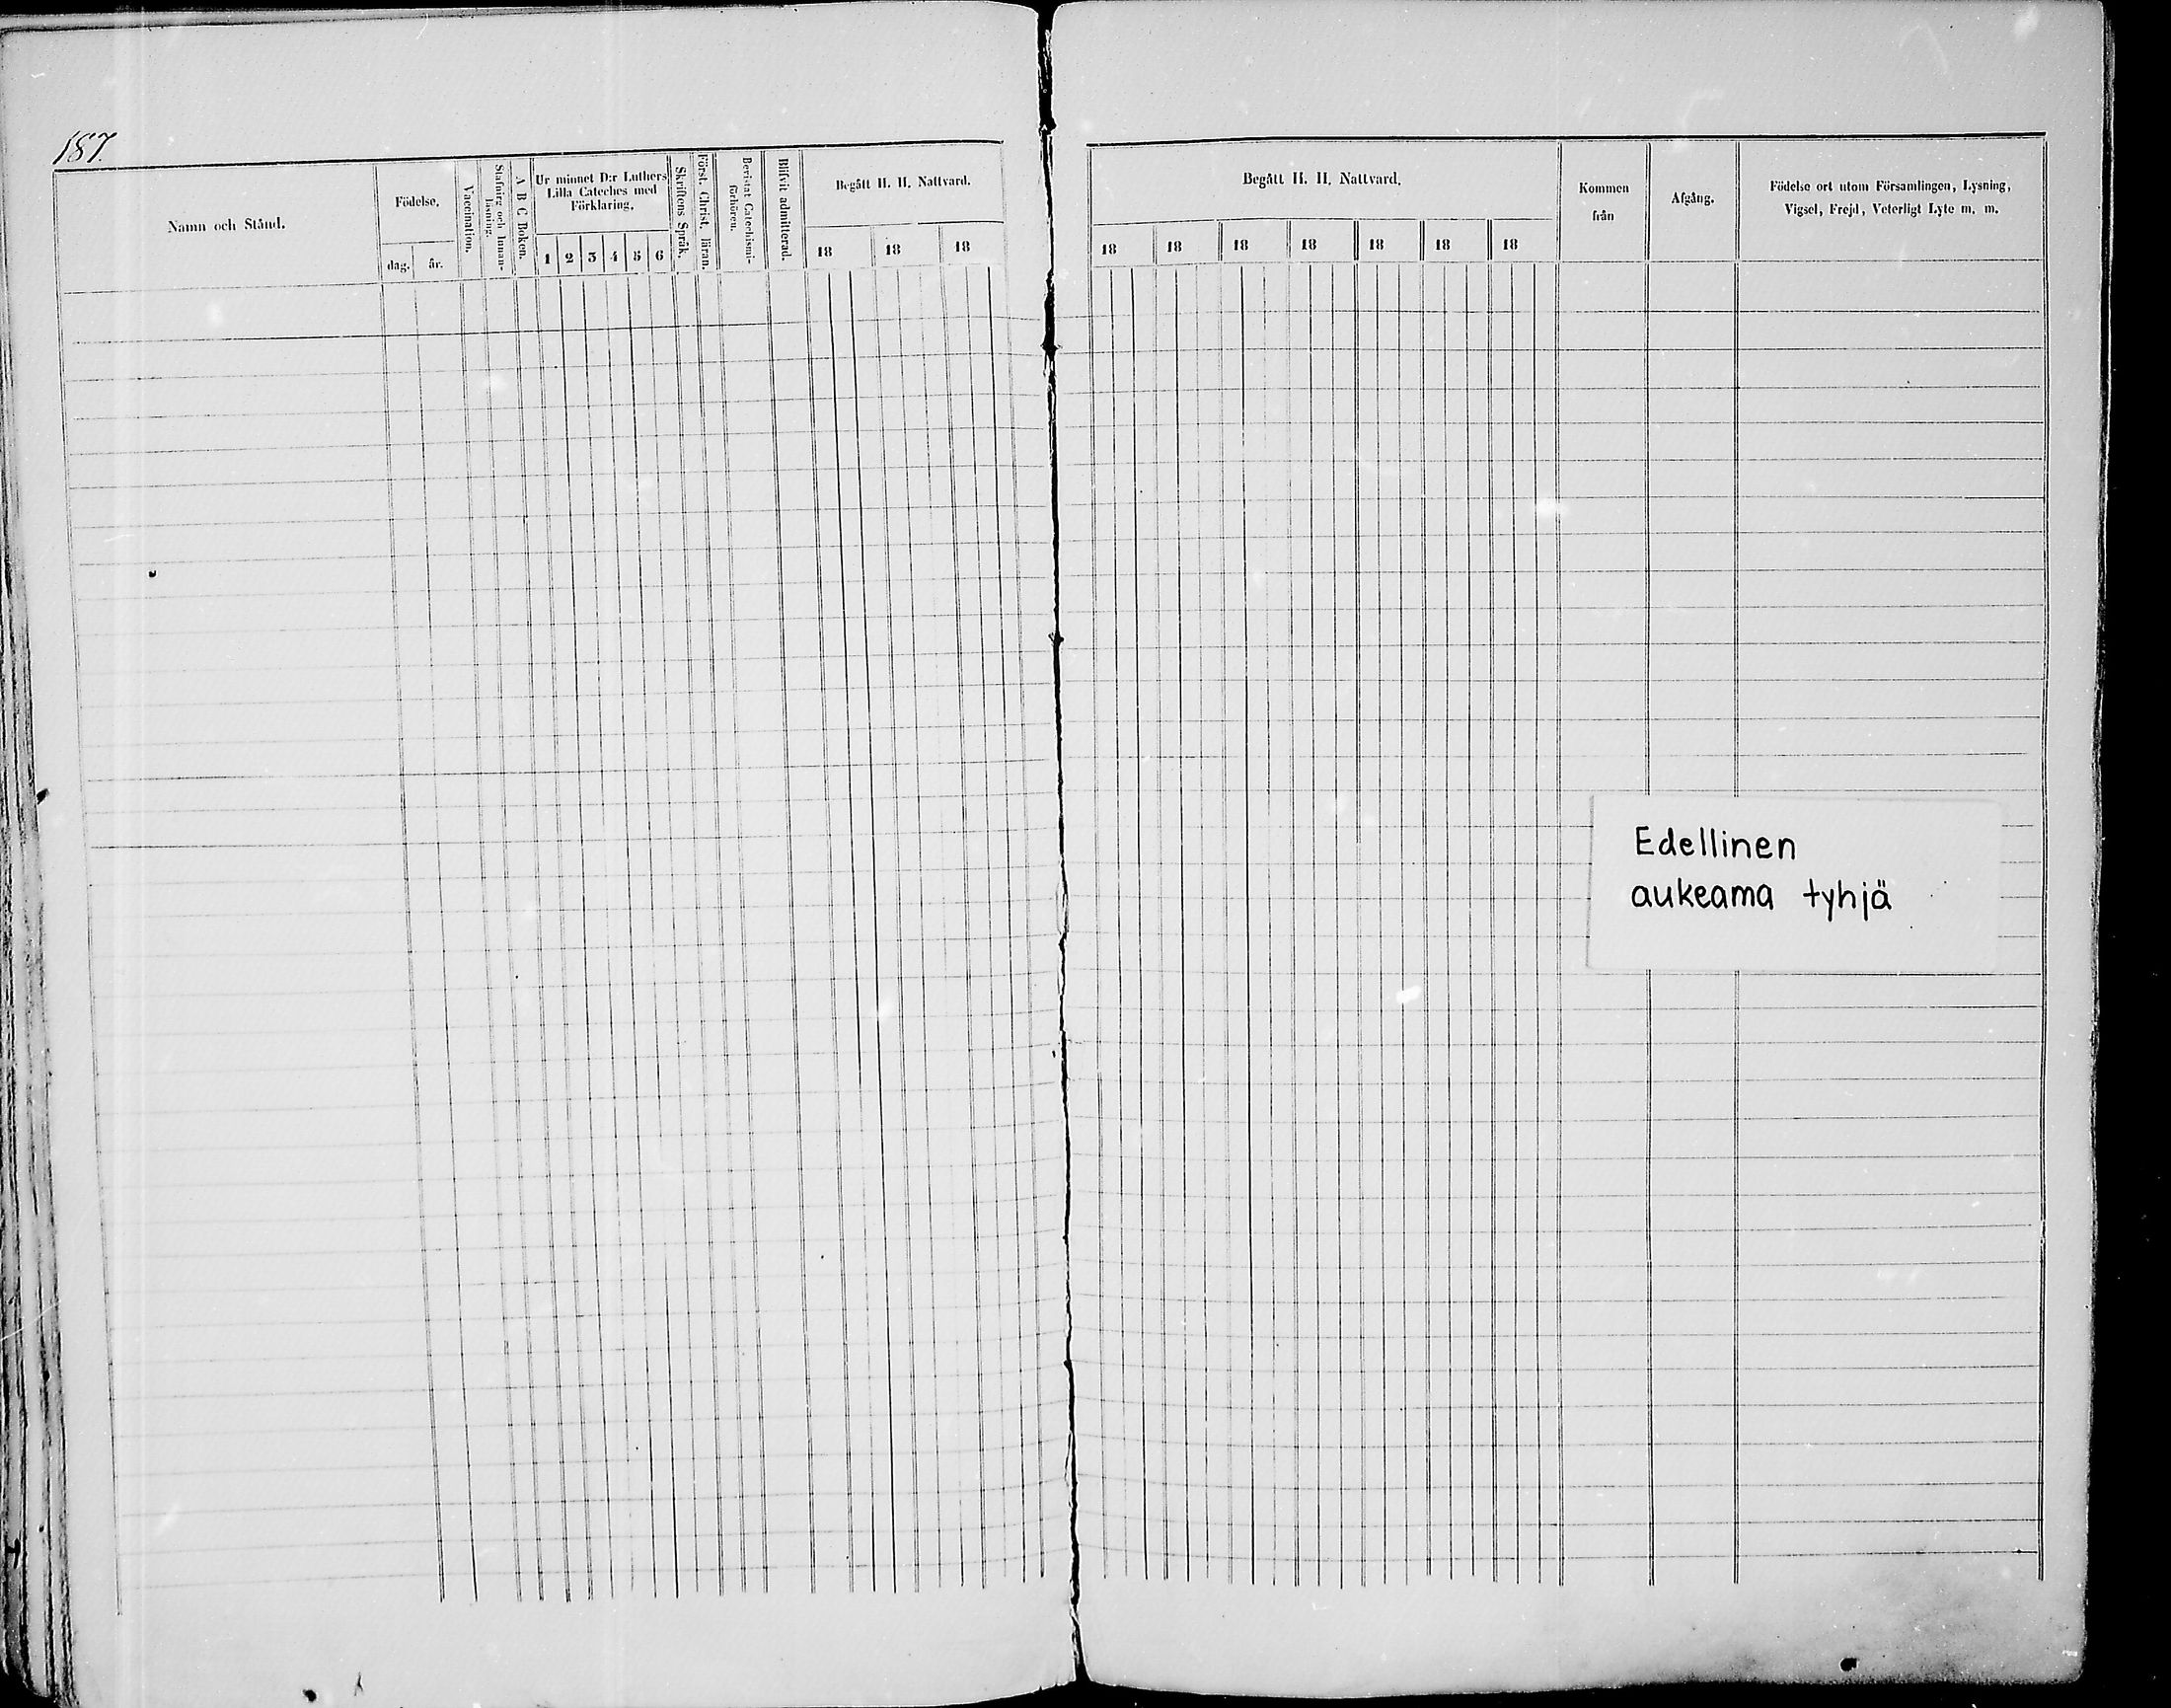 187.
Namn och Stånd.
Födelse.
dag.
år.
Vaccination.
Stafning och Innan-
läsning.
A B C Boken.
Ur minnet D:r Luthers
Lilla Cateches med
Förklaring.
1 2 3 4 5 6
Skriftens Språk.
Först. Christ. läran.
Bevistat Catechismi-
förhören.
Blifvit admitterad.
Begått H. H. Nattvard.
18 18 18
Begått H. H. Nattvard.
18 18 18 18 18 18 18
Kommen
från
Afgång.
Födelse ort utom Församlingen, Lysning,
Vigsel, Frejd, Veterligt Lyte m. m.
Edellinen
aukeama tyhjä